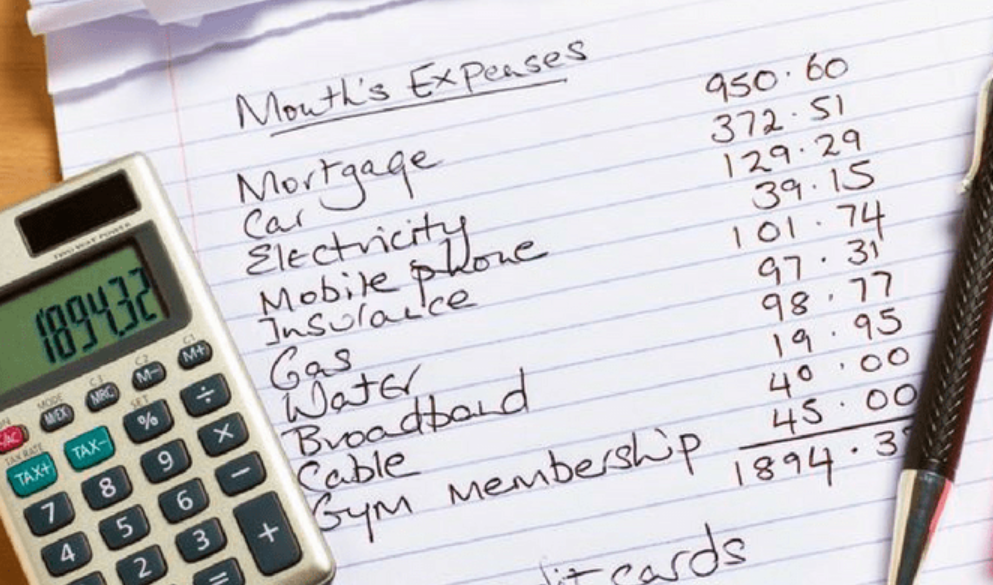 Month's Expenses
Mortgage 950.60
Car 372.51
Electricity 129.29
Mobile phone 39.15
Insurance 101.74
Gas 97.31
Water 98.77
Broadband 19.95
Cable 40.00
Gym Membership 45.00
1894.3
cards
TWO WAY POWER
1894.32
C3 C2 C1
MODE M/EX MRC M- M+
TAX RATE SET
TAX+ TAX- % ÷
7 8 9 ×
4 5 6 −
2 3 +
=